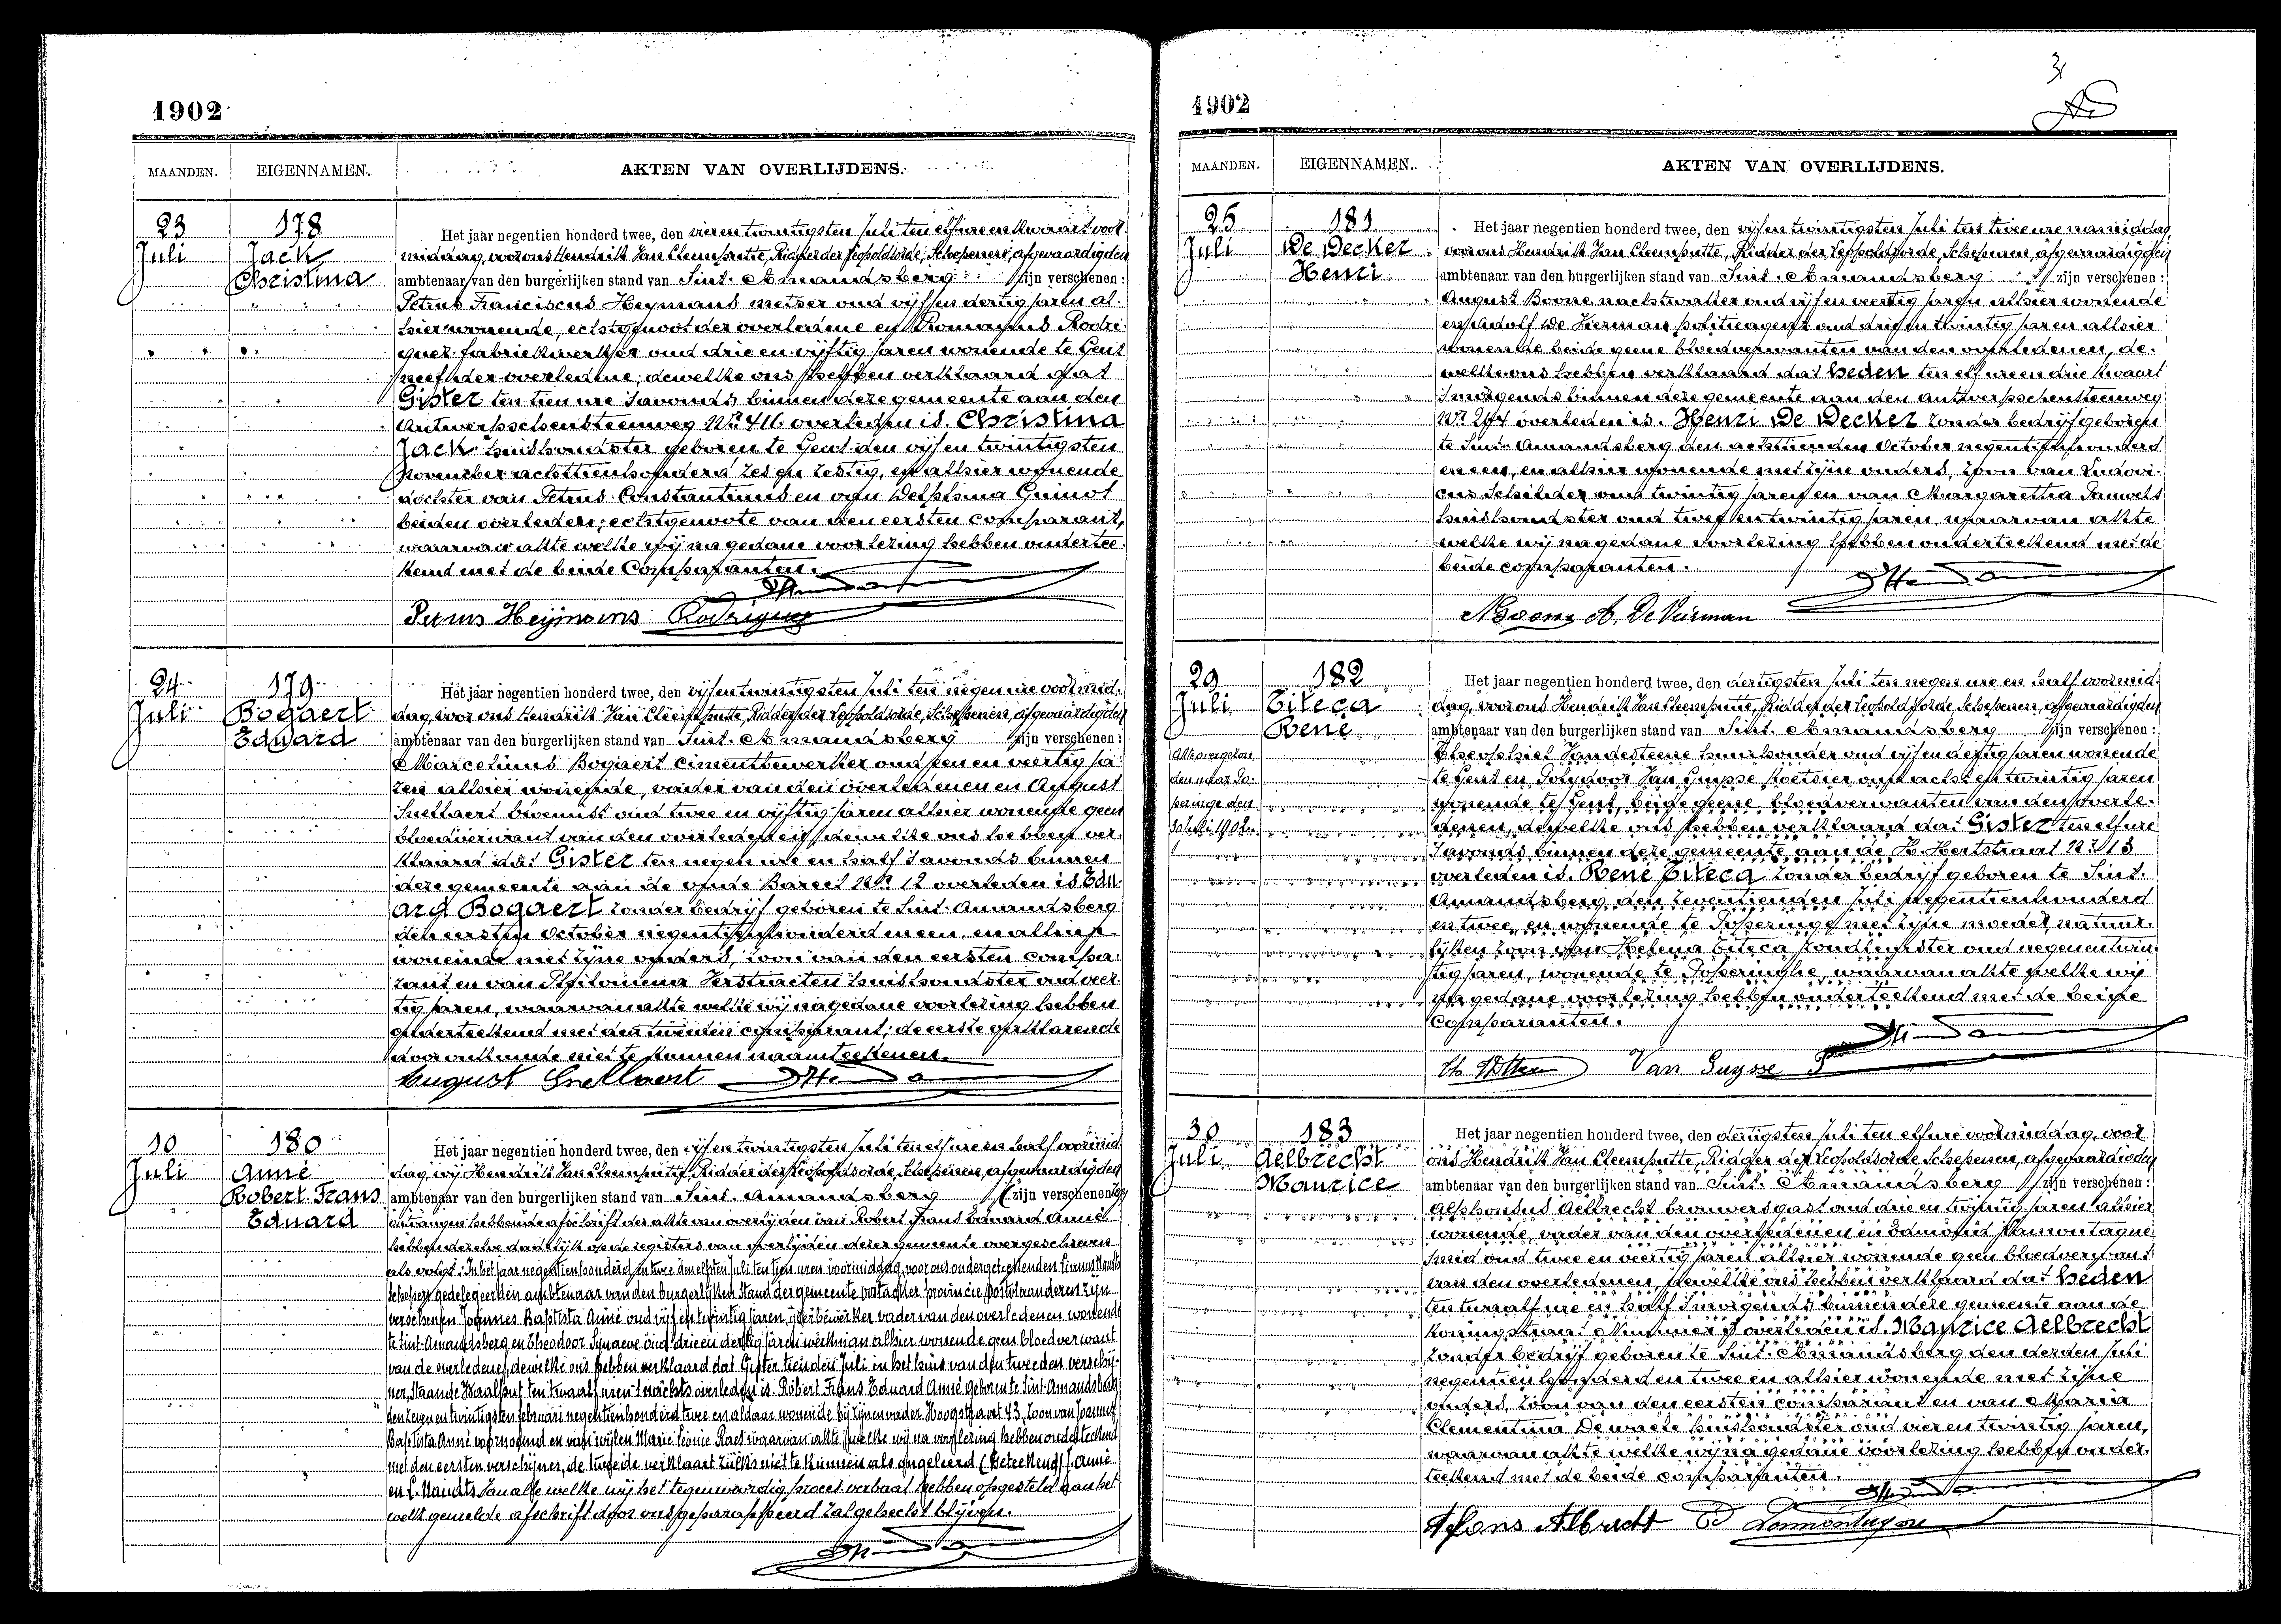 1902
MAANDEN. EIGENNAMEN. AKTEN VAN OVERLIJDENS.
23 Juli
178
Jack
Christina
Het jaar negentien honderd twee, den vier en twintigsten Juli ten elf ure en kwaart voor
middag, voor ons Hendrik Van Cleemputte, Ridder der Leopoldsorde, Schepenen, afgevaardigden
ambtenaar van den burgerlijken stand van Sint-Amandsberg zijn verschenen :
Petrus Franciscus Heymans metser oud vijf en dertig jaren al-
hier wonende, echtgenoot der overledene en Romanus Rodri-
guez fabriekwerker oud drie en vijftig jaren wonende te Gent
neef der overledene; dewelke ons hebben verklaard dat
Gister ten tien ure 'savonds binnen deze gemeente aan den
Antwerpschensteenweg Nr 416 overleden is Christina
Jack huishoudster geboren te Gent den vijf en twintigsten
November achttienhonderd zes en zestig, en alhier wonende
dochter van Petrus Constantinus en van Delphina Guinot
beiden overleden; echtgenoote van den eersten comparant,
waarvan akte welke wij na gedane voorlezing hebben ondertee-
kend met de beide Comparanten.
Petrus Heijmans Rodriguez
24 Juli
179
Bogaert
Eduard
Het jaar negentien honderd twee, den vijf en twintigsten Juli ten negen ure voormid-
dag, voor ons Hendrik Van Cleemputte, Ridder der Leopoldsorde, Schepenen, afgevaardigden
ambtenaar van den burgerlijken stand van Sint-Amandsberg zijn verschenen :
Marcelinus Bogaert cimentbewerker oud een en veertig ja-
ren alhier wonende, vader van den overledenen en August
Snellaert bloemist oud twee en vijftig jaren alhier wonende geen
bloedverwant van den overledenen; dewelke ons hebben ver-
klaard dat Gister ten negen ure en half 'savonds binnen
deze gemeente aan de oude Bareel Nr 12 overleden is Edu-
ard Bogaert zonder bedrijf geboren te Sint-Amandsberg
den eersten October negentienhonderd en een, en alhier
wonende met zijne ouders, zoon van den eersten compa-
rant en van Philomena Verstraeten huishoudster oud veer-
tig jaren, waarvan akte welke wij na gedane voorlezing hebben
onderteekend met den tweeden comparant; de eerste verklarende
door onkunde niet te kunnen naamteekenen.
August Snellaert
10 Juli
180
Anné
Robert Frans
Eduard
Het jaar negentien honderd twee, den vijf en twintigsten Juli ten elf ure en half voormid-
dag, wij Hendrik Van Cleemputte, Ridder der Leopoldsorde, Schepenen, afgevaardigden
ambtenaar van den burgerlijken stand van Sint-Amandsberg zijn verschenen
ontvangen hebbende afschrift der akte van overlijden van Robert Frans Eduard Anné
hebben dezelve dadelijk op de registers van overlijden dezer gemeente overgeschreven
als volgt: In het jaar negentienhonderd en twee den elfsten Juli ten tien uren voormiddag, voor ons ondergeteekenden
Schepen gedelegeerden ambtenaar van den burgerlijken Stand der gemeente Oostacker provincie Oostvlaanderen zijn
verschenen Joannes Baptista Anné oud vijf en twintig jaren, ijzerbewerker vader van den overledenen wonende
te Sint-Amandsberg en Theodoor Synaeve oud drie en dertig jaren werkman alhier wonende geen bloedverwant
van de overledene, dewelke ons hebben verklaard dat Gister tienden Juli in het huis van den tweeden verschij-
ner, staande Waalput ten twaalf uren 's nachts overleden is Robert Frans Eduard Anné geboren te Sint Amandsberg
den zeven en twintigsten februari negentienhonderd twee en aldaar wonende bij zijnen vader Hoogstraat 43, zoon van Joannes
Baptista Anné voornoemd en van wijlen Marie Leonie Raes waarvan akte welke wij na voorlezing hebben onderteekend
met den eersten verschijner, de tweede verklaart zulks niet te kunnen als ongeleerd (Geteekend) J. Anné
en L. Naudts. Van alle welke wij het tegenwoordig proces verbaal hebben opgesteld aan het
welk gemelde afschrift door ons geparapheerd zal gehecht blijven.
1902
MAANDEN. EIGENNAMEN. AKTEN VAN OVERLIJDENS.
25 Juli
181
De Decker
Henri
Het jaar negentien honderd twee, den vijf en twintigsten Juli ten twee ure namiddag
voor ons Hendrik Van Cleemputte, Ridder der Leopoldsorde, Schepenen, afgevaardigden
ambtenaar van den burgerlijken stand van Sint-Amandsberg zijn verschenen :
August Boone nachtwaker oud vijf en veertig jaren alhier wonende
en Adolf De Vierman politieagent oud drie en twintig jaren alhier
wonende beide geene bloedverwanten van den overledenen, de-
welke ons hebben verklaard dat heden ten elf ure en drie kwaart
'smorgends binnen deze gemeente aan den Antwerpschensteenweg
Nr 244 overleden is. Henri De Decker zonder bedrijf geboren
te Sint-Amandsberg den achttienden October negentienhonderd
en een, en alhier wonende met zijne ouders, zoon van Ludovi-
cus Schilder oud twintig jaren en van Margaretha Pauwels
huishoudster oud twee en twintig jaren, waarvan akte
welke wij na gedane voorlezing hebben onderteekend met de
beide comparanten.
A. De Vierman
29 Juli
182
Citeca
René
Akte overgezon-
den naar Po-
peringe den
30 Juli 1902.
Het jaar negentien honderd twee, den dertigsten Juli ten negen ure en half voormid-
dag, voor ons Hendrik Van Cleemputte, Ridder der Leopoldsorde, Schepenen, afgevaardigden
ambtenaar van den burgerlijken stand van Sint-Amandsberg zijn verschenen :
Theophiel Vandesteene huurhouder oud vijf en dertig jaren wonende
te Gent en Polydoor Van Guysse koetsier oud acht en twintig jaren
wonende te Gent, beide geene bloedverwanten van den overle-
denen, dewelke ons hebben verklaard dat Gister ten elf ure
'savonds binnen deze gemeente, aan de H. Hertstraat Nr 13
overleden is. René Citeca zonder bedrijf geboren te Sint-
Amandsberg, den zeventienden Juli negentienhonderd
en twee, en wonende te Poperinge met zijne moeder, natuur-
lijken zoon van Helena Citeca oud negen en twin-
tig jaren, wonende te Poperinghe, waarvan akte welke wij
na gedane voorlezing hebben onderteekend met de beide
Comparanten.
Van Guysse P
30 Juli
183
Aelbrecht
Maurice
Het jaar negentien honderd twee, den dertigsten Juli ten elf ure voormiddag, voor
ons Hendrik Van Cleemputte, Ridder der Leopoldsorde Schepenen, afgevaardigden
ambtenaar van den burgerlijken stand van Sint-Amandsberg zijn verschenen :
Alphonsus Aelbrecht brouwersgast oud drie en twintig jaren alhier
wonende, vader van den overledenen en Edmond Lamontagne
smid oud twee en veertig jaren alhier wonende geen bloedverwant
van den overledenen, dewelke ons hebben verklaard dat heden
ten twaalf ure en half 'smorgends binnen deze gemeente aan de
Koningstraat Nummer overleden is. Maurice Aelbrecht
zonder bedrijf geboren te Sint-Amandsberg den derden Juli
negentienhonderd en twee en alhier wonende met zijne
ouders, zoon van den eersten comparant en van Maria
Clementina Dewaele huishoudster oud vier en twintig jaren,
waarvan akte welke wij na gedane voorlezing hebben onder-
teekend met de beide comparanten.
Alfons Albrecht E Lamontagne